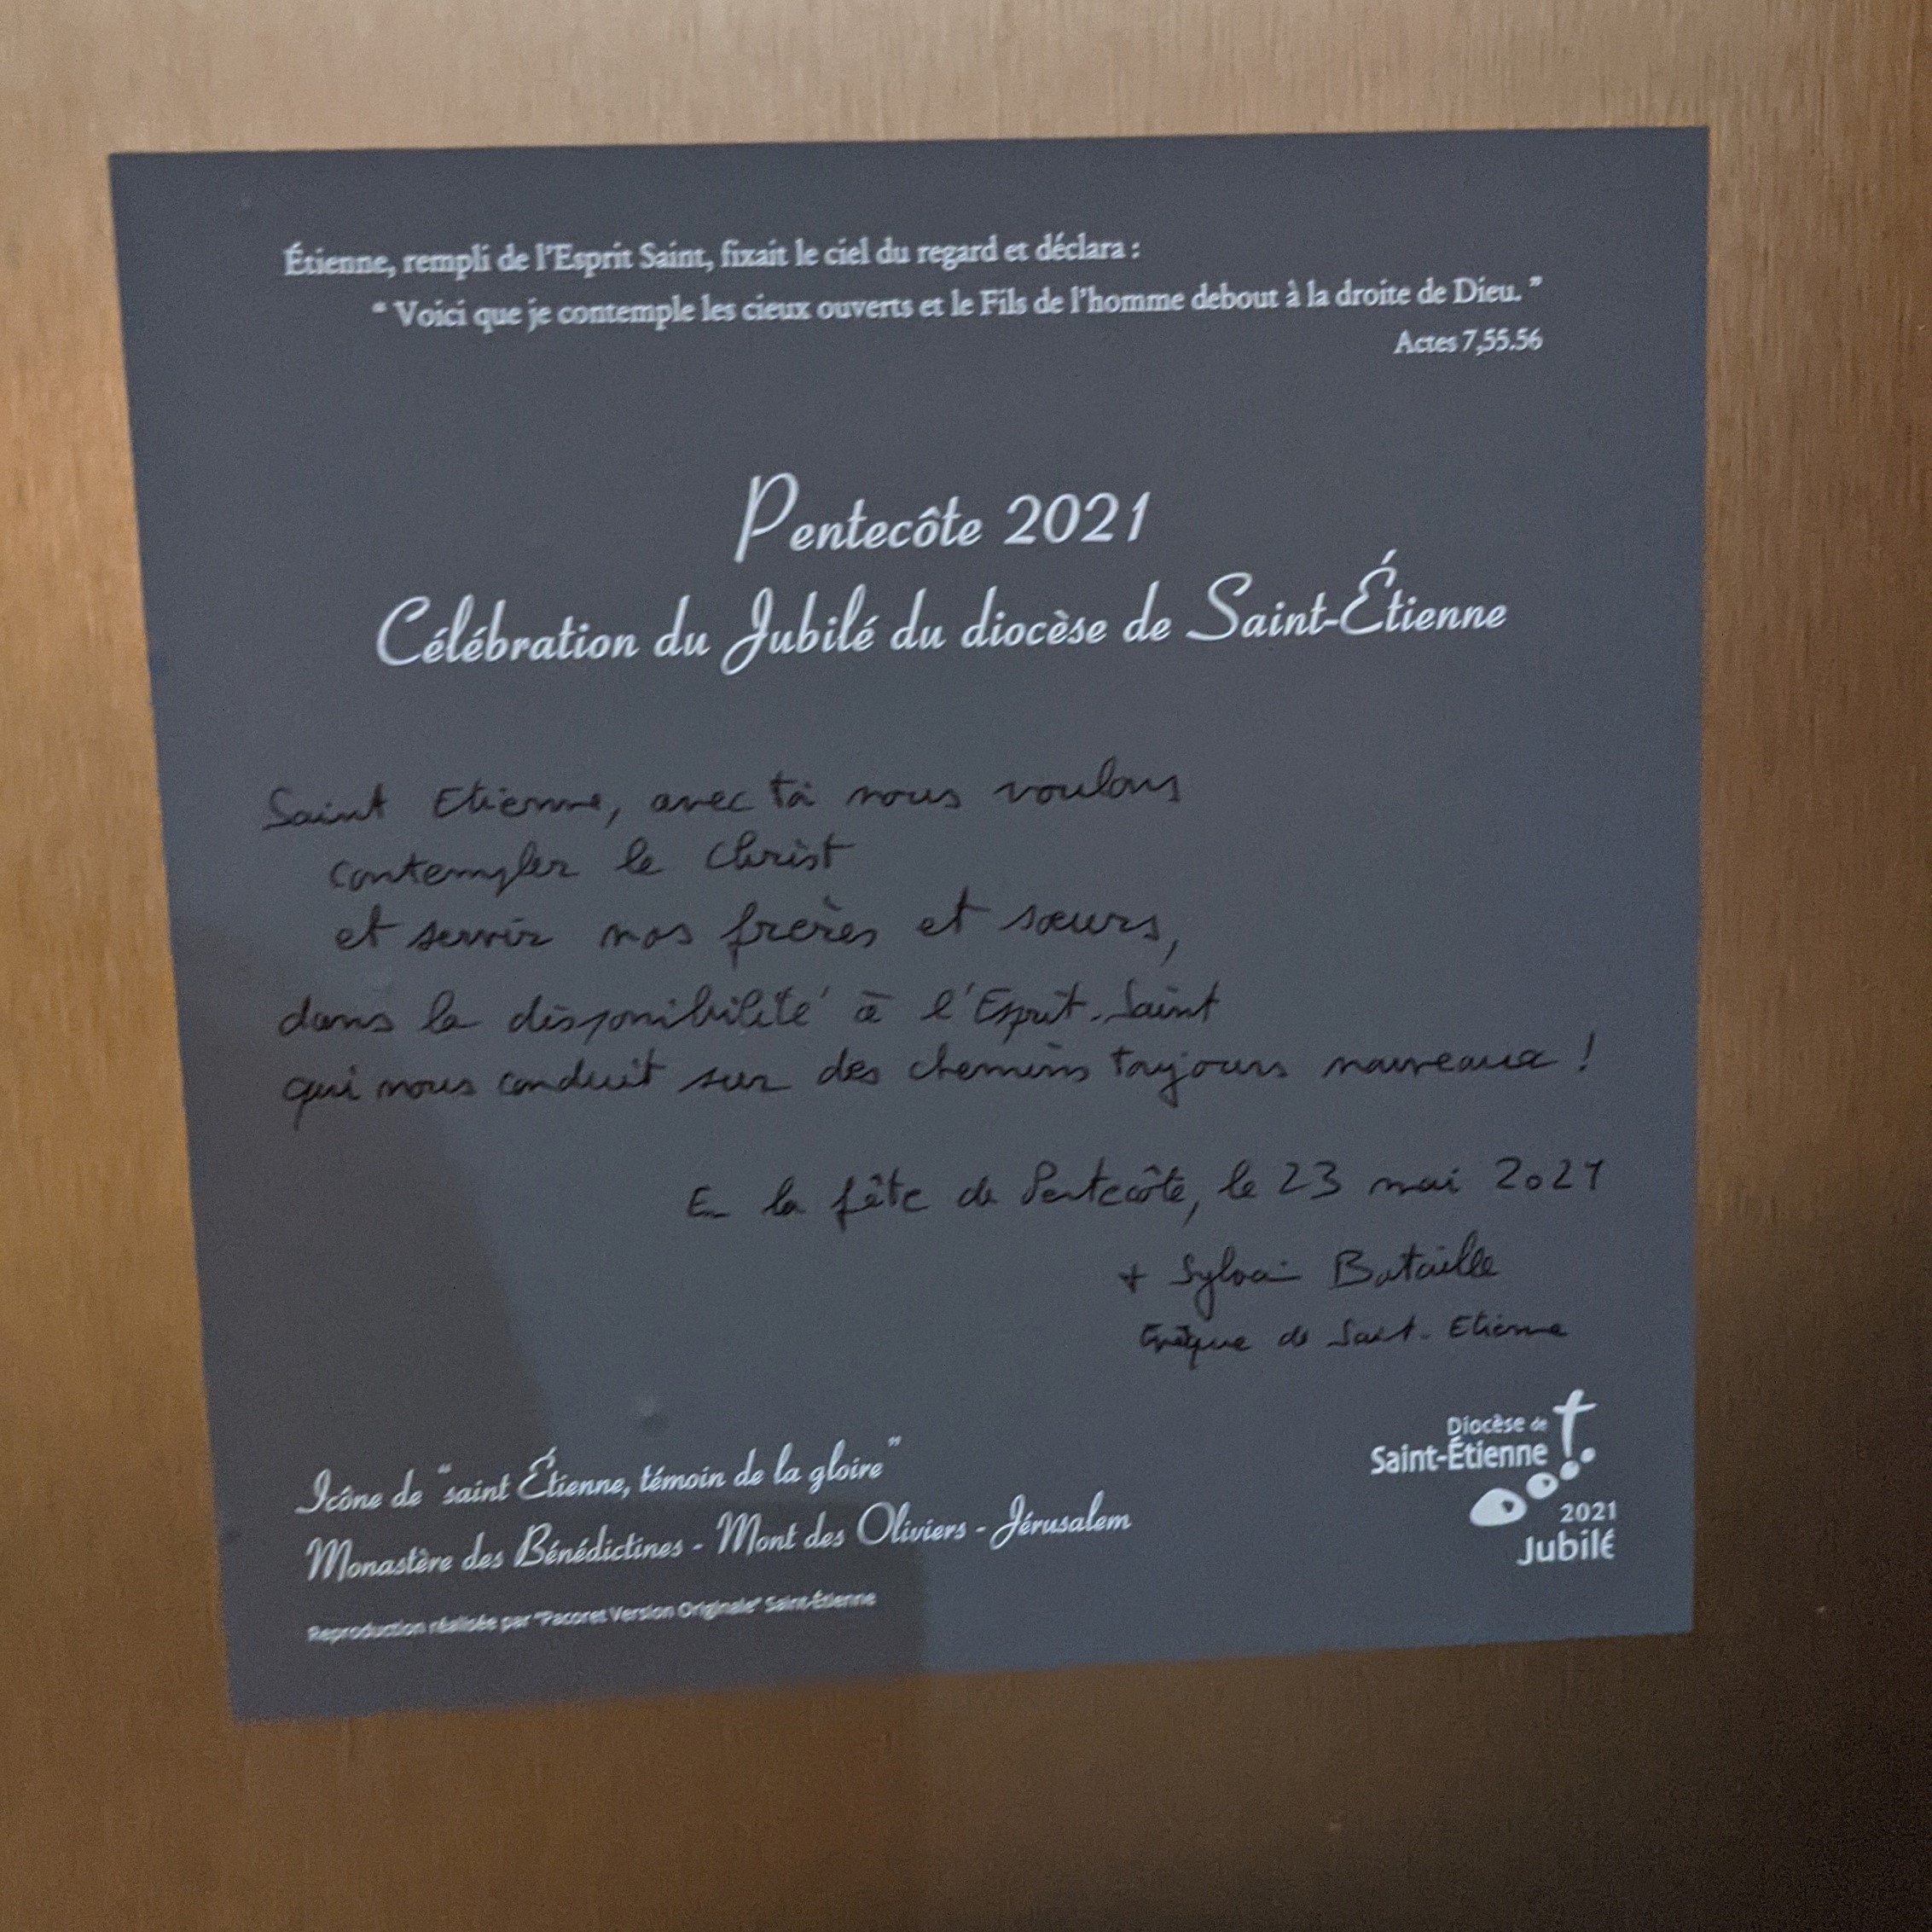 Étienne, rempli de l'Esprit Saint, fixait le ciel du regard et déclara :
“ Voici que je contemple les cieux ouverts et le Fils de l'homme debout à la droite de Dieu. ”
Actes 7,55.56
Pentecôte 2021
Célébration du Jubilé du diocèse de Saint-Étienne
Saint Etienne, avec toi nous voulons
contempler le Christ
et servir nos frères et sœurs,
dans la disponibilité à l'Esprit-Saint
qui nous conduit sur des chemins toujours nouveaux !
En la fête de Pentecôte, le 23 mai 2021
+ Sylvain Bataille
Evêque de Saint-Etienne
Icône de “saint Étienne, témoin de la gloire”
Monastère des Bénédictines - Mont des Oliviers - Jérusalem
Reproduction réalisée par "Pacoret Version Originale" Saint-Étienne
Diocèse de
Saint-Étienne
2021
Jubilé